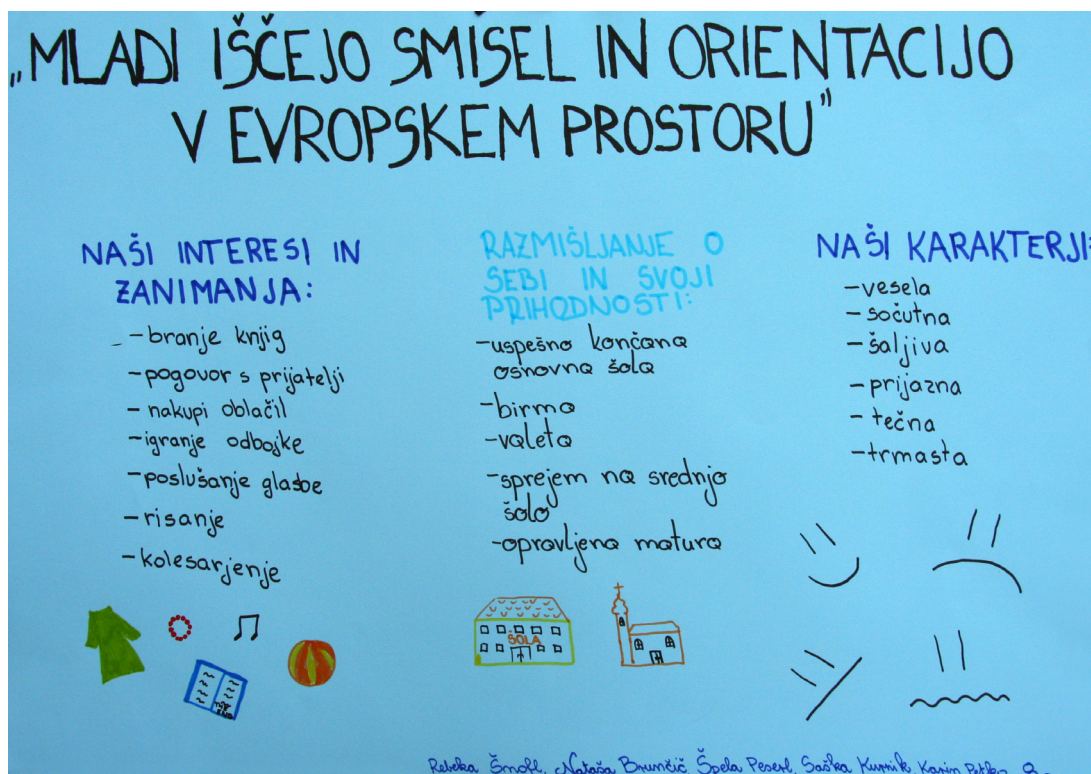 „MLADI IŠČEJO SMISEL IN ORIENTACIJO
V EVROPSKEM PROSTORU"
NAŠI INTERESI IN
ZANIMANJA:
-branje knjig
-pogovor s prijatelji
-nakupi oblačil
-igranje odbojke
-poslušanje glasbe
-risanje
-kolesarjenje
RAZMIŠLJANJE O
SEBI IN SVOJI
PRIHODNOSTI:
-uspešno končana
osnovna šola
-birma
-valeta
-sprejem na srednjo
šolo
-opravljena matura
ŠOLA
NAŠI KARAKTERJI:
-vesela
-sočutna
-šaljiva
-prijazna
-tečna
-trmasta
Rebeka Šmofl, Nataša Brunčič Špela Peserl, Saška Kurnik Karin